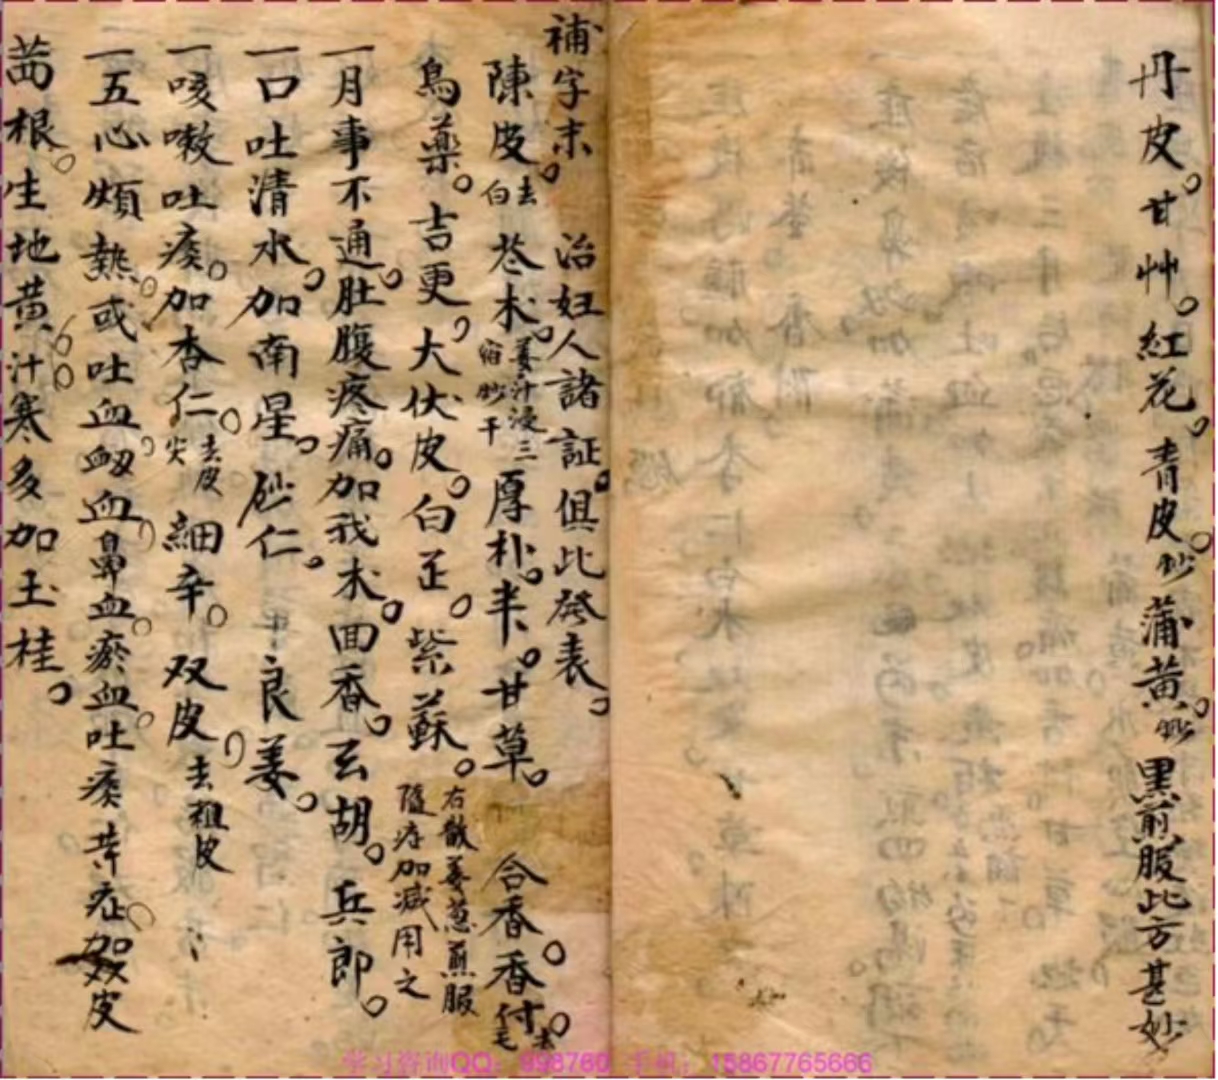 丹皮。甘艸。紅花。青皮。炒蒲黄。炒黑煎服此方甚妙
補字末 治妇人諸証。俱比發表。
陳皮。去白 苍术。姜汁浸三宿炒干 厚朴。半。甘草。 合香。香付。去毛
烏藥。吉更。大伏皮。白芷。紫蘇。 右散姜葱煎服
隨症加減用之
一月事不通。肚腹疼痛。加莪术。囬香。玄胡。兵郎。
一口吐清水。加南星。砂仁。良姜。
一咳嗽吐痰。加杏仁。去皮尖 細辛。双皮。去粗皮
一五心煩熱。或吐血。衂血。鼻血。瘀血。吐痰等症。加双皮
茜根。生地黄。汁寒多加玉桂。
学习咨询QQ：898760 手机：15867765666